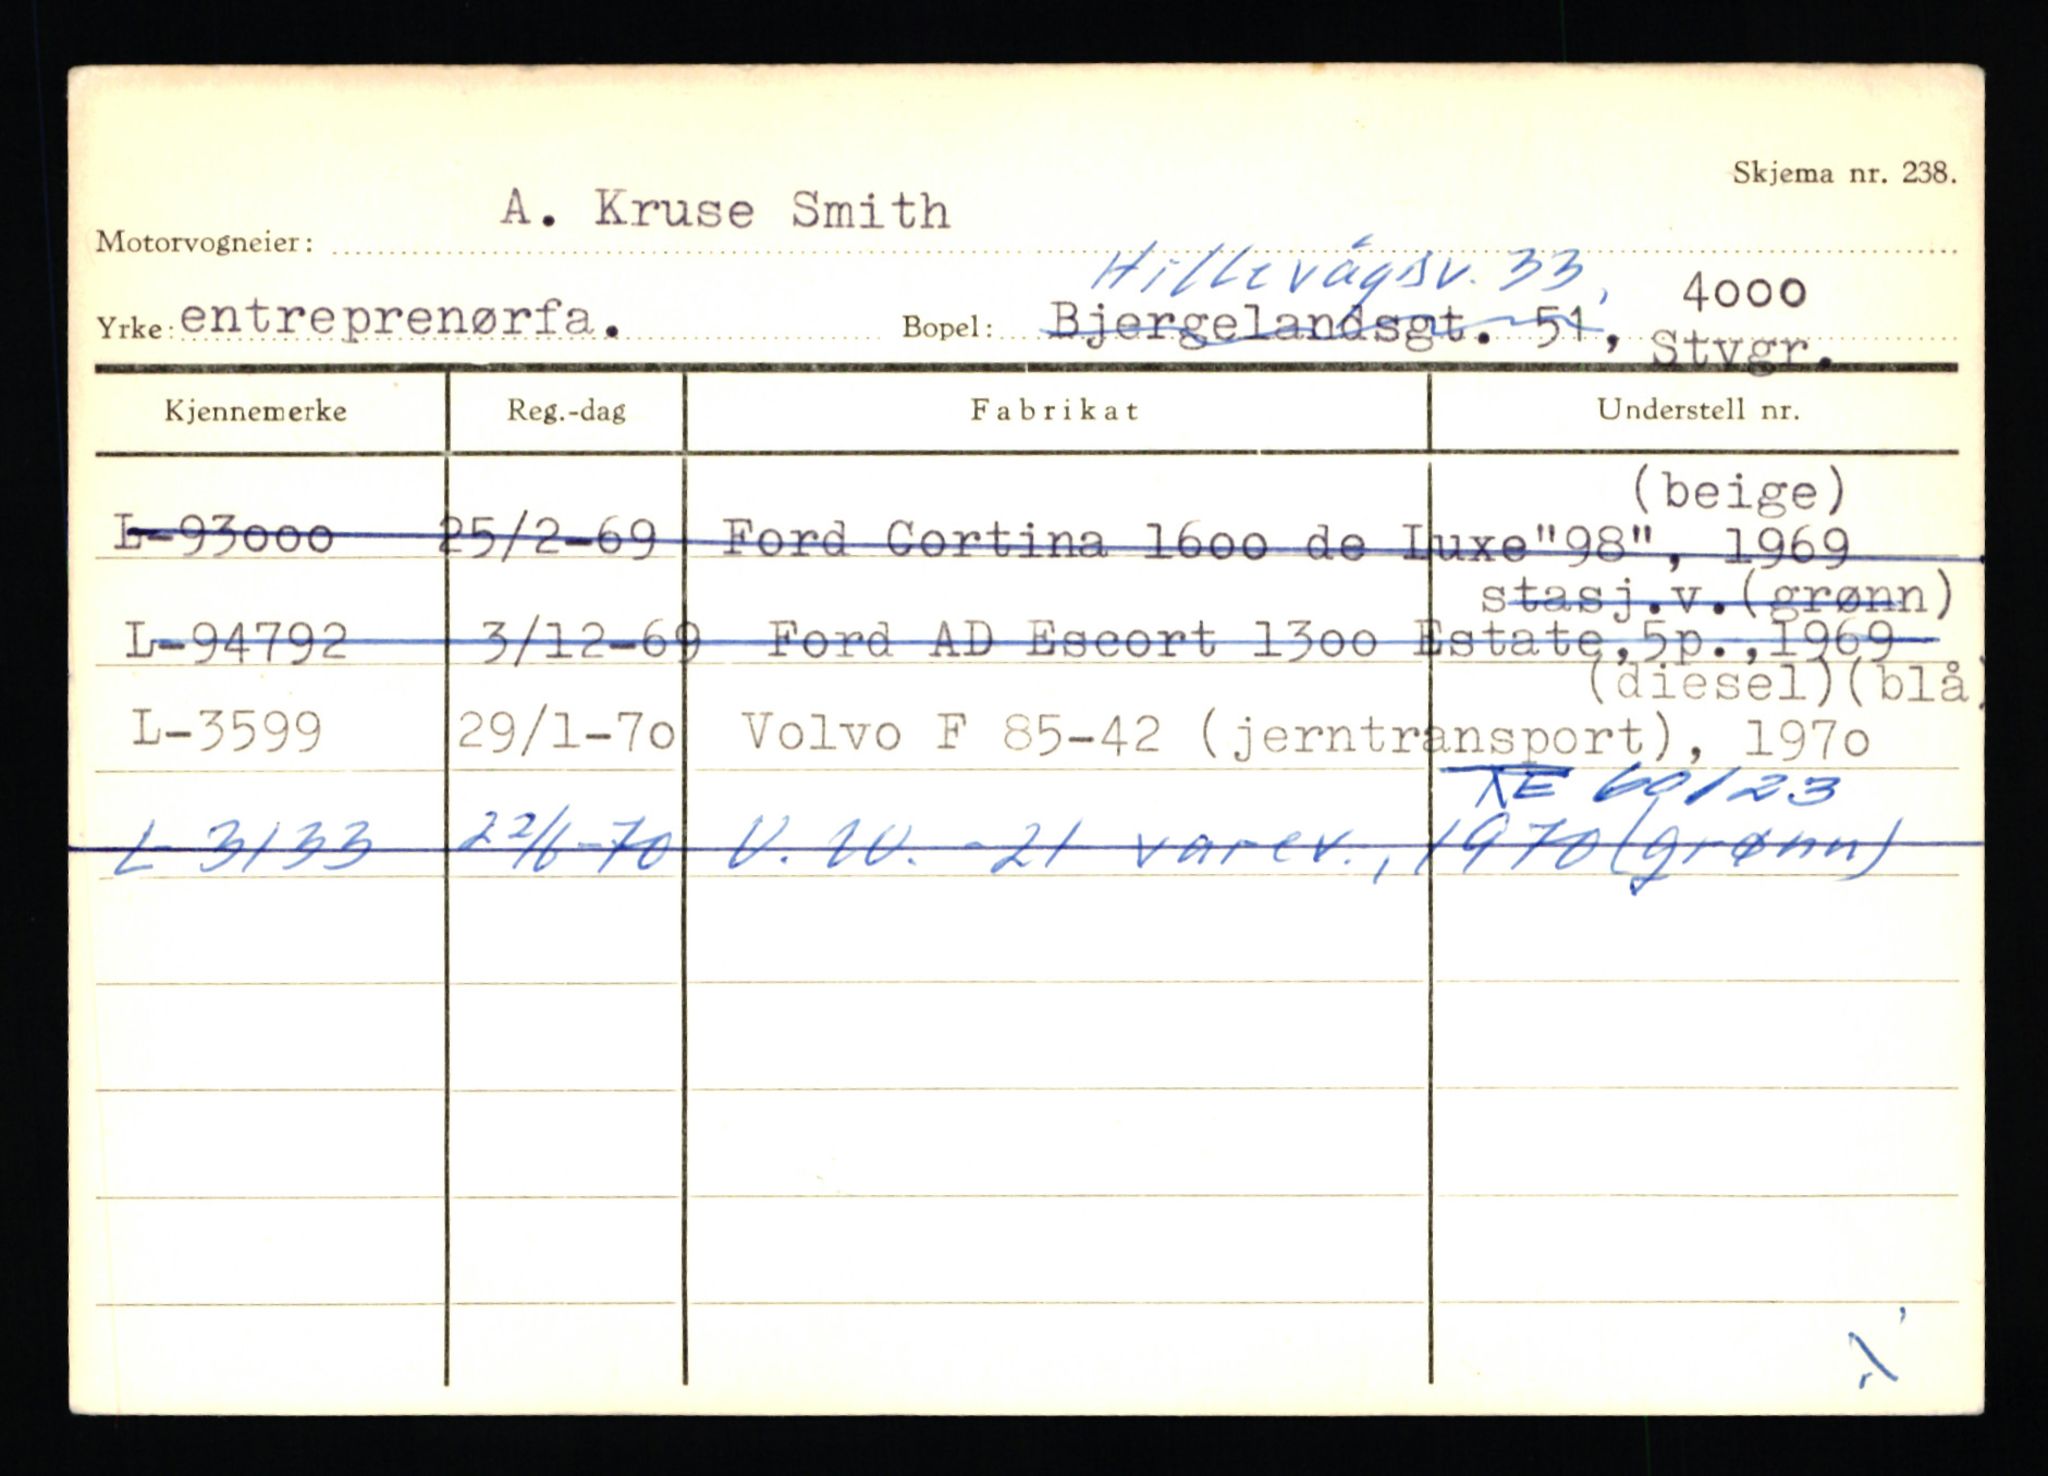 Skjema nr. 238.
Motorvogneier: A. Kruse Smith
Hillevågsv. 33,
Yrke: entreprenørfa. Bopel: Bjergelandsgt. 51, 4000 Stvgr.
Kjennemerke Reg.-dag Fabrikat Understell nr.
(beige)
L-93000 25/2-69 Ford Cortina 1600 de Luxe"98", 1969
stasj.v.(grønn)
L-94792 3/12-69 Ford AD Escort 1300 Estate,5p.,1969
(diesel)(blå)
L-3599 29/1-70 Volvo F 85-42 (jerntransport), 1970
60123
L-3133 22/6-70 V.W. -21 varev., 1970 (grønn)